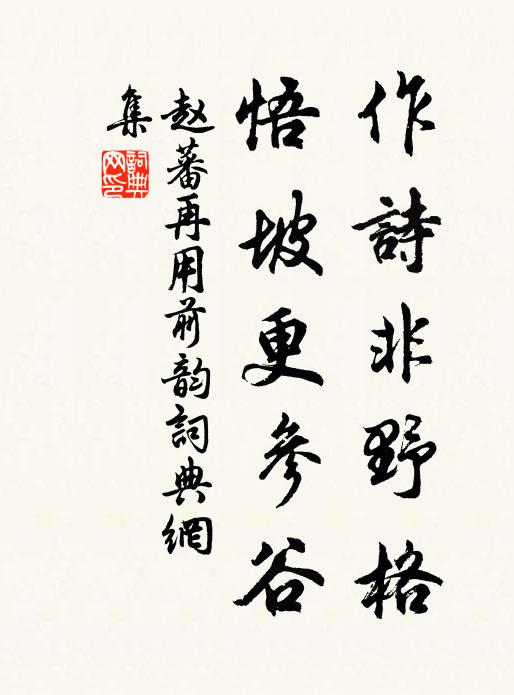 作詩非野格
悟坡更參谷
赵蕃再用前韵詞典網
集
詞典
网印